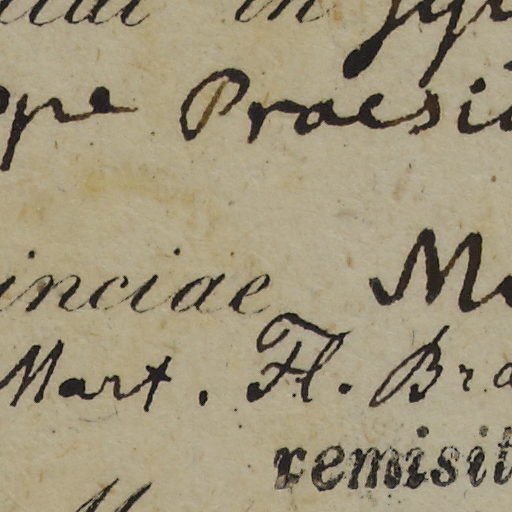 in
Praesi
inciae M
Mart. Fl. Bra
remisit